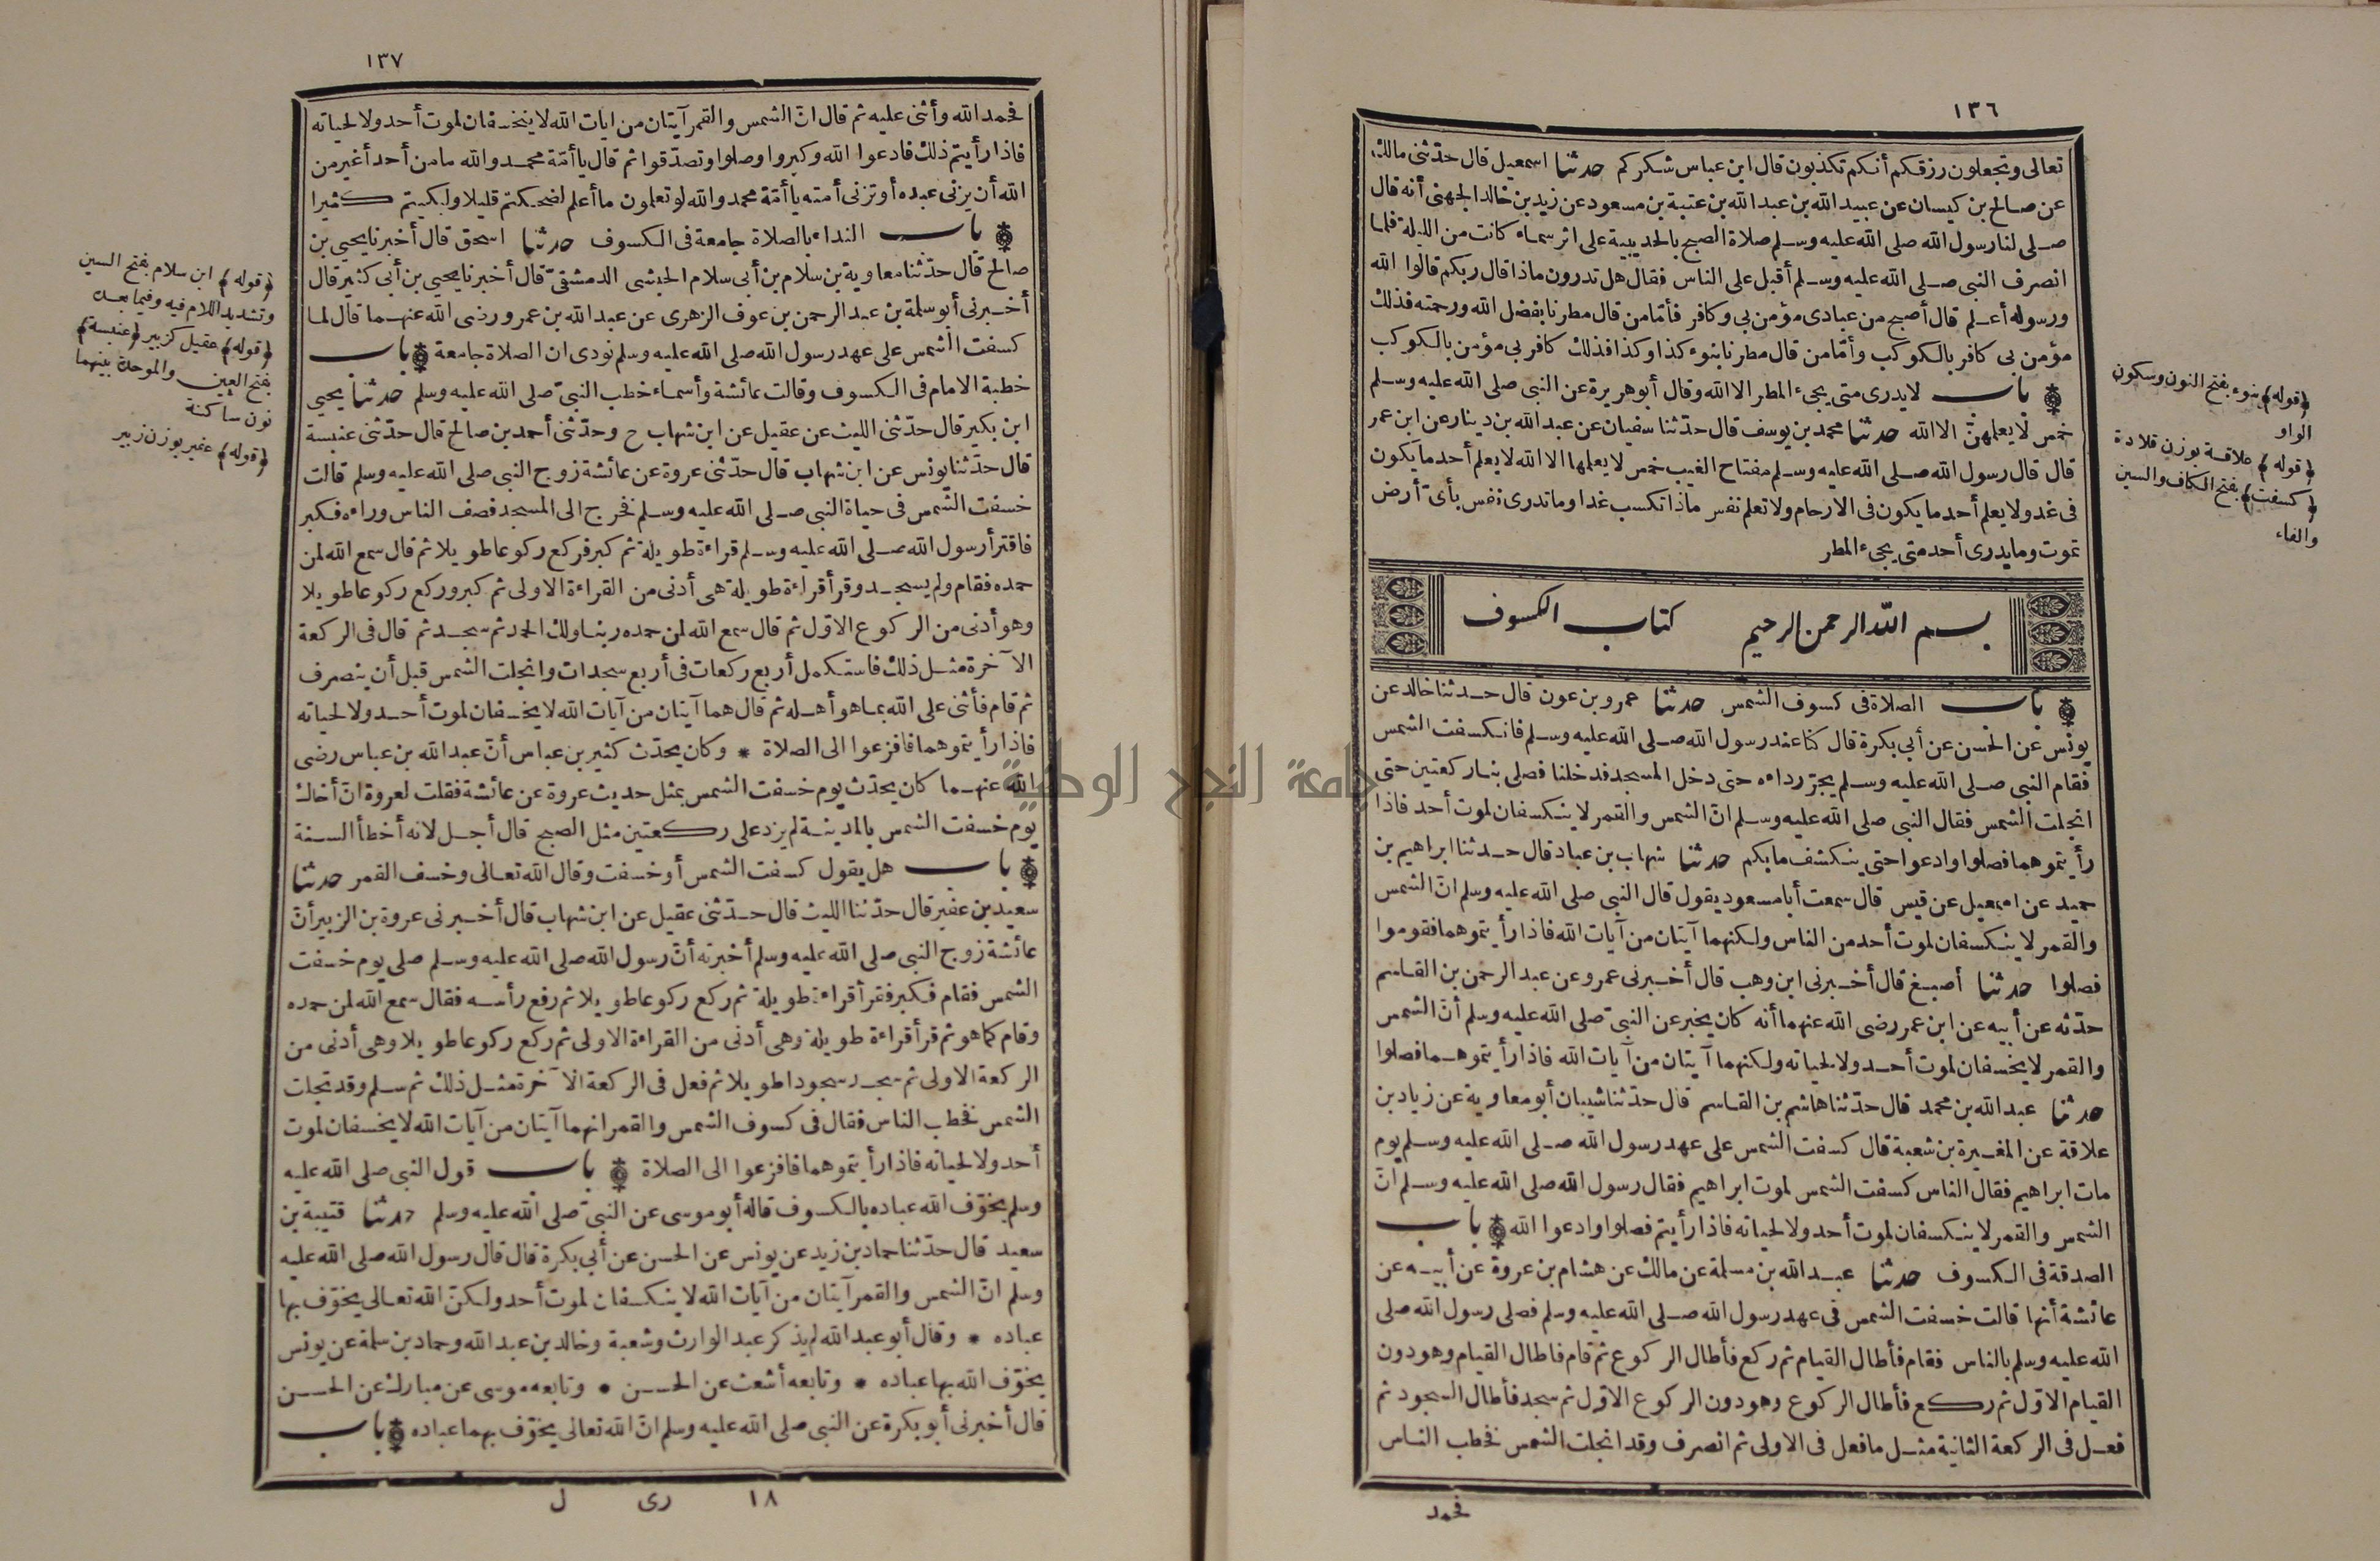 ١٣٦
تعالى وتجعلون رزقكم أنكم تكذبون قال ابن عباس شكركم حدثنا اسمعيل قال حدّثنى مالك
عن صالح بن كيسان عن عبيد الله بن عبد الله بن عتبة بن مسعود عن زيد بن خالد الجهنى أنه قال
صلى لنا رسول الله صلى الله عليه وسلم صلاة الصبح بالحديبية على اثر سماء كانت من الليلة فلما
انصرف النبى صلى الله عليه وسلم أقبل على الناس فقال هل تدرون ماذا قال ربكم قالوا الله
ورسوله أعلم قال أصبح من عبادى مؤمن بى وكافر فأمّا من قال مطرنا بفضل الله ورحمته فذلك
مؤمن بى كافر بالكوكب وأمّا من قال مطرنا بنوء كذا وكذا فذلك كافر بى مؤمن بالكوكب
باب لا يدرى متى يجىء المطر الا الله وقال أبو هريرة عن النبى صلى الله عليه وسلم
خمس لا يعلمهنّ الا الله حدثنا محمد بن يوسف قال حدّثنا سفيان عن عبد الله بن دينار عن ابن عمر
قال قال رسول الله صلى الله عليه وسلم مفتاح الغيب خمس لا يعلمها الا الله لا يعلم أحد ما يكون
فى غد ولا يعلم أحد ما يكون فى الارحام ولا تعلم نفس ماذا تكسب غدا وما تدرى نفس بأىّ أرض
تموت وما يدرى أحد متى يجىء المطر
بسم الله الرحمن الرحيم كتاب الكسوف
باب الصلاة فى كسوف الشمس حدثنا عمرو بن عون قال حدثنا خالد عن
يونس عن الحسن عن أبى بكرة قال كنا عند رسول الله صلى الله عليه وسلم فانكسفت الشمس
فقام النبى صلى الله عليه وسلم يجرّ رداءه حتى دخل المسجد فدخلنا فصلى بنا ركعتين حتى
انجلت الشمس فقال النبى صلى الله عليه وسلم انّ الشمس والقمر لا ينكسفان لموت أحد فاذا
رأيتموهما فصلوا وادعوا حتى ينكشف ما بكم حدثنا شهاب بن عباد قال حدثنا ابراهيم بن
حميد عن اسمعيل عن قيس قال سمعت أبا مسعود يقول قال النبى صلى الله عليه وسلم انّ الشمس
والقمر لا ينكسفان لموت أحد من الناس ولكنهما آيتان من آيات الله فاذا رأيتموهما فقوموا
فصلوا حدثنا أصبغ قال أخبرنى ابن وهب قال أخبرنى عمرو عن عبد الرحمن بن القاسم
حدّثه عن أبيه عن ابن عمر رضى الله عنهما أنه كان يخبر عن النبىّ صلى الله عليه وسلم أنّ الشمس
والقمر لا يخسفان لموت أحد ولا لحياته ولكنهما آيتان من آيات الله فاذا رأيتموهما فصلوا
حدثنا عبد الله بن محمد قال حدّثنا هاشم بن القاسم قال حدّثنا شيبان أبو معاوية عن زياد بن
علاقة عن المغيرة بن شعبة قال كسفت الشمس على عهد رسول الله صلى الله عليه وسلم يوم
مات ابراهيم فقال الناس كسفت الشمس لموت ابراهيم فقال رسول الله صلى الله عليه وسلم انّ
الشمس والقمر لا ينكسفان لموت أحد ولا لحياته فاذا رأيتم فصلوا وادعوا الله باب
الصدقة فى الكسوف حدثنا عبد الله بن مسلمة عن مالك عن هشام بن عروة عن أبيه عن
عائشة أنها قالت خسفت الشمس فى عهد رسول الله صلى الله عليه وسلم فصلى رسول الله صلى
الله عليه وسلم بالناس فقام فأطال القيام ثم ركع فأطال الركوع ثم قام فاطال القيام وهو دون
القيام الاوّل ثم ركع فأطال الركوع وهو دون الركوع الاوّل ثم سجد فأطال السجود ثم
فعل فى الركعة الثانية مثل ما فعل فى الاولى ثم انصرف وقد انجلت الشمس فخطب الناس
فحمد
﴿قوله﴾ بنوء بفتح النون وسكون
الواو
﴿قوله﴾ علاقة بوزن قلادة
﴿كسفت﴾ بفتح الكاف والسين
والفاء
١٣٧
فحمد الله وأثنى عليه ثم قال انّ الشمس والقمر آيتان من ايات الله لا ينخسفان لموت أحد ولا لحياته
فاذا رأيتم ذلك فادعوا الله وكبروا وصلوا وتصدّقوا ثم قال يا أمّة محمد والله ما من أحد أغير من
الله أن يزنى عبده أو تزنى أمته يا أمّة محمد والله لو تعلمون ما أعلم لضحكتم قليلا ولبكيتم كثيرا
باب النداء بالصلاة جامعة فى الكسوف حدثنا اسحق قال أخبرنا يحيى بن
صالح قال حدّثنا معاوية بن سلام بن أبى سلام الحبشى الدمشقىّ قال أخبرنا يحيى بن أبى كثير قال
أخبرنى أبو سلمة بن عبد الرحمن بن عوف الزهرى عن عبد الله بن عمرو رضى الله عنهما قال لما
كسفت الشمس على عهد رسول الله صلى الله عليه وسلم نودى ان الصلاة جامعة باب
خطبة الامام فى الكسوف وقالت عائشة وأسماء خطب النبىّ صلى الله عليه وسلم حدثنا يحيى
ابن بكير قال حدّثنى الليث عن عقيل عن ابن شهاب ح وحدّثنى أحمد بن صالح قال حدّثنى عنبسة
قال حدّثنا يونس عن ابن شهاب قال حدّثنى عروة عن عائشة زوج النبى صلى الله عليه وسلم قالت
خسفت الشمس فى حياة النبى صلى الله عليه وسلم فخرج الى المسجد فصف الناس وراءه فكبر
فاقترأ رسول الله صلى الله عليه وسلم قراءة طويلة ثم كبر فركع ركوعا طويلا ثم قال سمع الله لمن
حمده فقام ولم يسجد وقرأ قراءة طويلة هى أدنى من القراءة الاولى ثم كبر وركع ركوعا طويلا
وهو أدنى من الركوع الاوّل ثم قال سمع الله لمن حمده ربنا ولك الحمد ثم سجد ثم قال فى الركعة
الآخرة مثل ذلك فاستكمل أربع ركعات فى أربع سجدات وانجلت الشمس قبل أن ينصرف
ثم قام فأثنى على الله بما هو أهله ثم قال هما آيتان من آيات الله لا يخسفان لموت أحد ولا لحياته
فاذا رأيتموهما فافزعوا الى الصلاة * وكان يحدّث كثير بن عباس أنّ عبد الله بن عباس رضى
الله عنهما كان يحدّث يوم خسفت الشمس بمثل حديث عروة عن عائشة فقلت لعروة انّ أخاك
يوم خسفت الشمس بالمدينة لم يزد على ركعتين مثل الصبح قال أجل لانه أخطأ السنة
باب هل يقول كسفت الشمس أو خسفت وقال الله تعالى وخسف القمر حدثنا
سعيد بن عفير قال حدّثنا الليث قال حدّثنى عقيل عن ابن شهاب قال أخبرنى عروة بن الزبير أنّ
عائشة زوج النبى صلى الله عليه وسلم أخبرته أنّ رسول الله صلى الله عليه وسلم صلى يوم خسفت
الشمس فقام فكبر فقرأ قراءة طويلة ثم ركع ركوعا طويلا ثم رفع رأسه فقال سمع الله لمن حمده
وقام كما هو ثم قرأ قراءة طويلة وهى أدنى من القراءة الاولى ثم ركع ركوعا طويلا وهى أدنى من
الركعة الاولى ثم سجد سجودا طويلا ثم فعل فى الركعة الآخرة مثل ذلك ثم سلم وقد تجلت
الشمس فخطب الناس فقال فى كسوف الشمس والقمر انهما آيتان من آيات الله لا يخسفان لموت
أحد ولا لحياته فاذا رأيتموهما فافزعوا الى الصلاة باب قول النبى صلى الله عليه
وسلم يخوّف الله عباده بالكسوف قاله أبو موسى عن النبىّ صلى الله عليه وسلم حدثنا قتيبة بن
سعيد قال حدّثنا حماد بن زيد عن يونس عن الحسن عن أبى بكرة قال قال رسول الله صلى الله عليه
وسلم انّ الشمس والقمر آيتان من آيات الله لا ينكسفان لموت أحد ولكنّ الله تعالى يخوّف بها
عباده * وقال أبو عبد الله لم يذكر عبد الوارث وشعبة وخالد بن عبد الله وحماد بن سلمة عن يونس
يخوّف الله بها عباده * وتابعه أشعث عن الحسن * وتابعه موسى عن مبارك عن الحسن
قال أخبرنى أبو بكرة عن النبى صلى الله عليه وسلم انّ الله تعالى يخوّف بهما عباده باب
١٨ رى ل
﴿قوله﴾ ابن سلام بفتح السين
وتشديد اللام فيه وفيما بعده
﴿قوله﴾ عقيل كزبير ﴿عنبسة﴾
بفتح العين والموحدة بينهما
نون ساكنة
﴿قوله﴾ عفير بوزن زبير
جامعة النجاح الوطنية